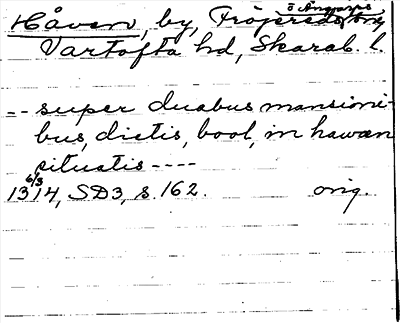 Håven, by, Fröjereds
Vartofta hd, Skarab. l.
-- super duabus mansioni-
bus, dictis, bool, in hawæn
situatis ----
13 6/3 14, SD3, s. 162. orig.